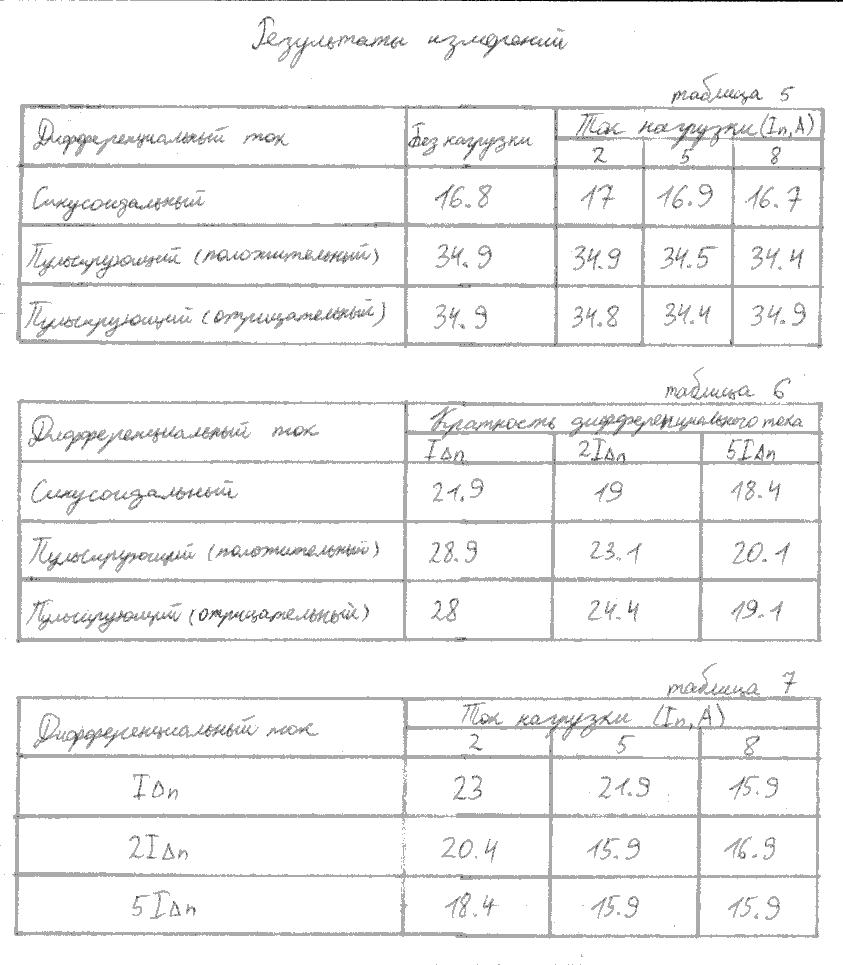 Результаты измерений
таблица 5
Дифференциальный ток Без нагрузки Ток нагрузки (Iп, А)
2 5 8
Синусоидальный 16.8 17 16.9 16.7
Пульсирующий (положительный) 34.9 34.9 34.5 34.4
Пульсирующий (отрицательный) 34.9 34.8 34.4 34.9
таблица 6
Дифференциальный ток Кратность дифференциального тока
IΔn 2IΔn 5IΔn
Синусоидальный 21.9 19 18.4
Пульсирующий (положительный) 28.9 23.1 20.1
Пульсирующий (отрицательный) 28 24.4 19.1
таблица 7
Дифференциальный ток Ток нагрузки (Iп, А)
2 5 8
IΔn 23 21.9 15.9
2IΔn 20.4 15.9 16.9
5IΔn 18.4 15.9 15.9